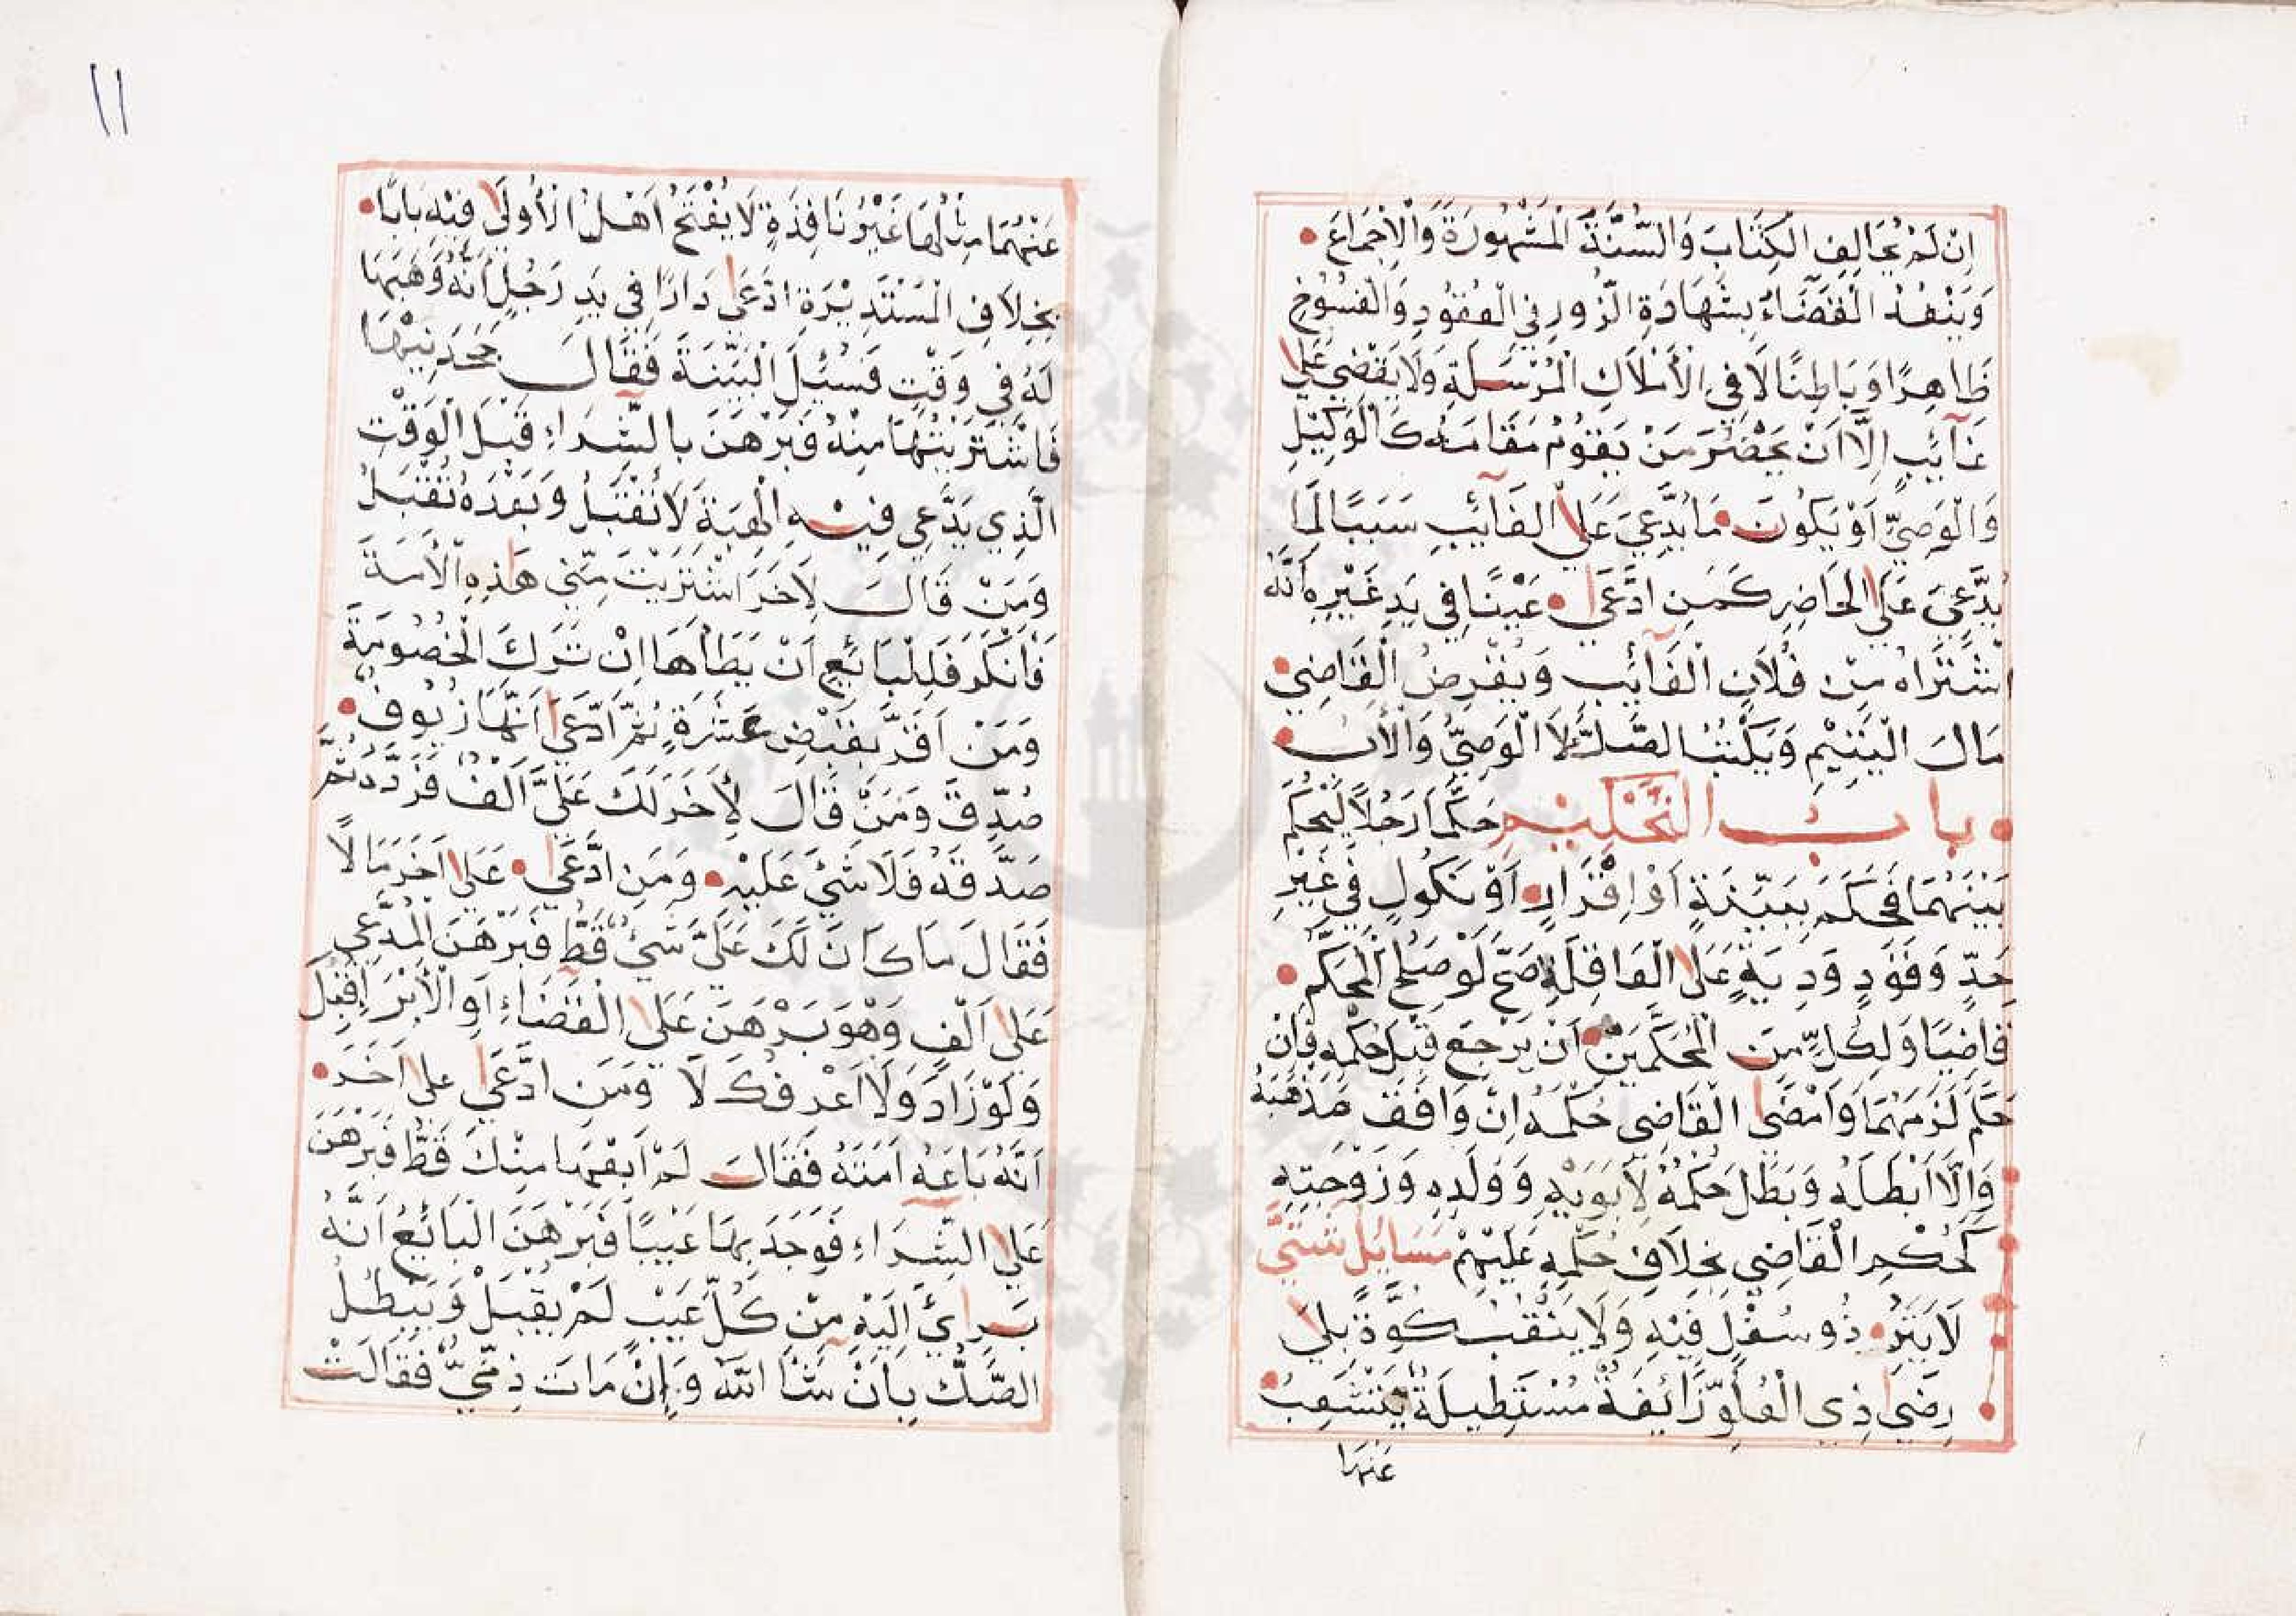 اِنْ لَمْ يُخَالِفِ الْكِتَابَ وَالسُّنَّةَ الْمَشْهُورَةَ وَالْاِجْمَاعَ
وَيَنْفُذُ الْقَضَاءُ بِشَهَادَةِ الزُّورِ فِي الْعُقُودِ وَالْفُسُوخِ
ظَاهِرًا وَبَاطِنًا لَا فِي الْأَمْلَاكِ الْمُرْسَلَةِ وَلَا يَقْضِي عَلَى
غَآئِبٍ اِلَّا اَنْ يَحْضُرَ مَنْ يَقُوْمُ مَقَامَهُ كَالْوَكِيْلِ
وَالْوَصِيِّ اَوْ يَكُونَ مَا يُدَّعِيَ عَلَى الْغَآئِبِ سَبَبًا لِمَا
يُدَّعِيَ عَلَى الْحَاضِرِ كَمَنِ ادَّعَى عَيْنًا فِي يَدِ غَيْرِهِ اَنَّهُ
اشْتَرَاهُ مِنْ فُلَانٍ الْغَآئِبِ وَيُقْرِضُ الْقَاضِي
مَالَ الْيَتِيْمِ وَيَكْتُبُ الصَّكَّ لَا الْوَصِيُّ وَالْأَبُ
بابُ التَّحْكِيْمِ حَكَّمَا رَجُلًا لِيَحْكُمَ
بَيْنَهُمَا فَحَكَمَ بِبَيِّنَةٍ اَوْ اِقْرَارٍ اَوْ نَكُولٍ فِي غَيْرِ
حَدٍّ وَقَوَدٍ وَدِيَةٍ عَلَى الْعَاقِلَةِ صَحَّ لَوْ صَلُحَ الْمُحَكَّمُ
قَاضِيًا وَلِكُلٍّ مِنَ الْمُحَكِّمَيْنِ اَنْ يَرْجِعَ قَبْلَ حُكْمِهِ فَاِنْ
حَكَمَ لَزِمَهُمَا وَاَمْضَى الْقَاضِي حُكْمَهُ اِنْ وَافَقَ مَذْهَبَهُ
وَاِلَّا اَبْطَلَهُ وَبَطَلَ حُكْمُهُ لِاَبَوَيْهِ وَوَلَدِهِ وَزَوْجَتِهِ
كَحُكْمِ الْقَاضِي بِخِلَافِ حُكْمِهِ عَلَيْهِمْ مَسَائِلُ شَتَّى
لَا يَتِدُ ذُو سُفْلٍ فِيْهِ وَلَا يَنْقُبُ كُوَّةً بِلَا
رِضَى ذِي الْعُلُوِّ زَائِغَةٌ مُسْتَطِيلَةٌ يَتَشَعَّبُ
عَنْهَا
١١
عَنْهُمَا مِثْلُهَا غَيْرُ نَافِذَةٍ لَا يَفْتَحُ اَهْلُ الْأُولَى فِيْهِ بَابًا
بِخِلَافِ الْمُسْتَدِيْرَةِ ادَّعَى دَارًا فِي يَدِ رَجُلٍ اَنَّهُ وَهَبَهَا
لَهُ فِي وَقْتٍ فَسُئِلَ الْبَيِّنَةَ فَقَالَ جَحَدَنِيْهَا
فَاشْتَرَيْتُهَا مِنْهُ فَبَرْهَنَ بِالشِّرَاءِ قَبْلَ الْوَقْتِ
الَّذِي يَدَّعِي فِيْهِ الْهِبَةَ لَا تُقْبَلُ وَبَعْدَهُ تُقْبَلُ
وَمَنْ قَالَ لِاَخَرَ اشْتَرَيْتَ مِنِّي هَذِهِ الْأَمَةَ
فَاَنْكَرَ فَلِلْبَائِعِ اَنْ يَطَأَهَا اِنْ تَرَكَ الْخُصُومَةَ
وَمَنْ اَقَرَّ بِقَبْضِ عَشَرَةٍ ثُمَّ ادَّعَى اَنَّهَا زُيُوفٌ
صُدِّقَ وَمَنْ قَالَ لِأَخَرَ لَكَ عَلَيَّ اَلْفٌ فَرَدَّهُ ثُمَّ
صَدَّقَهُ فَلَا شَيْءَ عَلَيْهِ وَمَنِ ادَّعَى عَلَى اَخَرَ مَالًا
فَقَالَ مَا كَانَ لَكَ عَلَيَّ شَيْءٌ قَطُّ فَبَرْهَنَ الْمُدَّعِي
عَلَى اَلْفٍ وَهُوَ بَرْهَنَ عَلَى الْقَضَاءِ اَوِ الْاَبْرَاءِ قُبِلَ
وَلَوْ زَادَ وَلَا اَعْرِفُكَ لَا وَمَنِ ادَّعَى عَلَى اَخَرَ
اَنَّهُ بَاعَهُ اَمَتَهُ فَقَالَ لَمْ اَبِعْهَا مِنْكَ قَطُّ فَبَرْهَنَ
عَلَى الشِّرَاءِ فَوَجَدَ بِهَا عَيْبًا فَبَرْهَنَ الْبَائِعُ اَنَّهُ
بَرِئَ اِلَيْهِ مِنْ كُلِّ عَيْبٍ لَمْ يُقْبَلْ وَيَبْطُلُ
الصَّكُّ بِاَنْ شَآءَ اللّٰهُ وَاِنْ مَاتَ ذِمِّيٌّ فَقَالَتْ